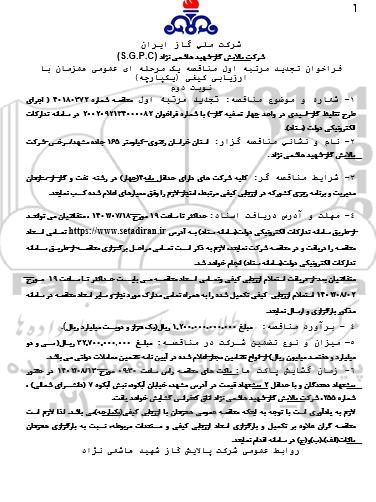 1
شرکت ملی گاز ایران
شرکت پالایش گاز شهید هاشمی نژاد (S.G.P.C)
فراخوان تجدید مرتبه اول مناقصه یک مرحله ای عمومی همزمان با
ارزیابی کیفی (یکپارچه)
نوبت دوم
۱- شماره و موضوع مناقصه: تجدید مرتبه اول مناقصه شماره
طرح تثبیت گاز اسیدی در واحد چهار تصفیه گاز) با شماره فراخوان در سامانه تدارکات
الکترونیکی دولت (ستاد).
۲- نام و نشانی مناقصه گزار: استان خراسان رضوی-کیلومتر ۱۶۵ جاده مشهد-سرخس-شرکت
پالایش گاز شهید هاشمی نژاد.
۳- شرایط مناقصه گر: کلیه شرکت های دارای حداقل در رشته نفت و گاز از سازمان
مدیریت و برنامه ریزی کشور که در ارزیابی کیفی مرتبط، امتیاز لازم را وفق معیارهای اعلام شده کسب نمایند.
۴- مهلت و آدرس دریافت اسناد: حداکثر تا ساعت ۱۹ مورخ ۱۴۰۲/۰۷/۱۸. متقاضیان می توانند
از طریق سامانه تدارکات الکترونیکی دولت(سامانه ستاد) به آدرس https://www.setadiran.ir تمامی اسناد
مناقصه را دریافت و در مناقصه شرکت نمایند. لازم به ذکر است تمامی مراحل برگزاری مناقصه از طریق سامانه
تدارکات الکترونیکی دولت(سامانه ستاد) انجام خواهد شد.
متقاضیان بعد از دریافت استعلام ارزیابی کیفی وتمامی اسناد مناقصه می بایست حداکثر تا ساعت ۱۹ مورخ
۱۴۰۲/۰۸/۰۲ استعلام ارزیابی کیفی تکمیل شده را به همراه تمامی مدارک مورد نیاز و سایر اسناد مناقصه در سامانه
مذکور بارگزاری و ارسال نمایند.
۴- برآورد مناقصه: مبلغ ۱,۲۰۰,۰۰۰,۰۰۰,۰۰۰ ریال(یک هزار و دویست میلیارد ریال).
۵- میزان و نوع تضمین شرکت در مناقصه: مبلغ ریال(سی و دو
میلیارد و هفتصد میلیون ریال) از انواع تضامین مجاز اعلام شده در آیین نامه تضمین معاملات دولتی می باشد.
۶- زمان گشایش پاکت ها: پاکت های مناقصه راس ساعت ۰۹:۳۰ مورخ ۱۴۰۲/۰۸/۱۳ در حضور
پیشنهاد دهندگان و با حداقل ۲ پیشنهاد قیمت در آدرس مشهد، خیابان آبکوه، نبش آبکوه ۷ (دانشسرای شمالی) .
شماره ۲۵۵. شرکت پالایش گاز شهید هاشمی نژاد اتاق کنفرانس گشایش خواهد یافت.
لازم به یادآوری است با توجه به اینکه مناقصه عمومی همزمان با ارزیابی کیفی(یکپارچه)می باشد لذا لازم است
مناقصه گران علاوه بر تکمیل و بارگزاری اسناد ارزیابی کیفی و مستندات مربوطه، نسبت به بارگزاری همزمان
پاکات(الف)،(ب)و(ج) در سامانه اقدام نمایند.
روابط عمومی شرکت پالایش گاز شهید هاشمی نژاد